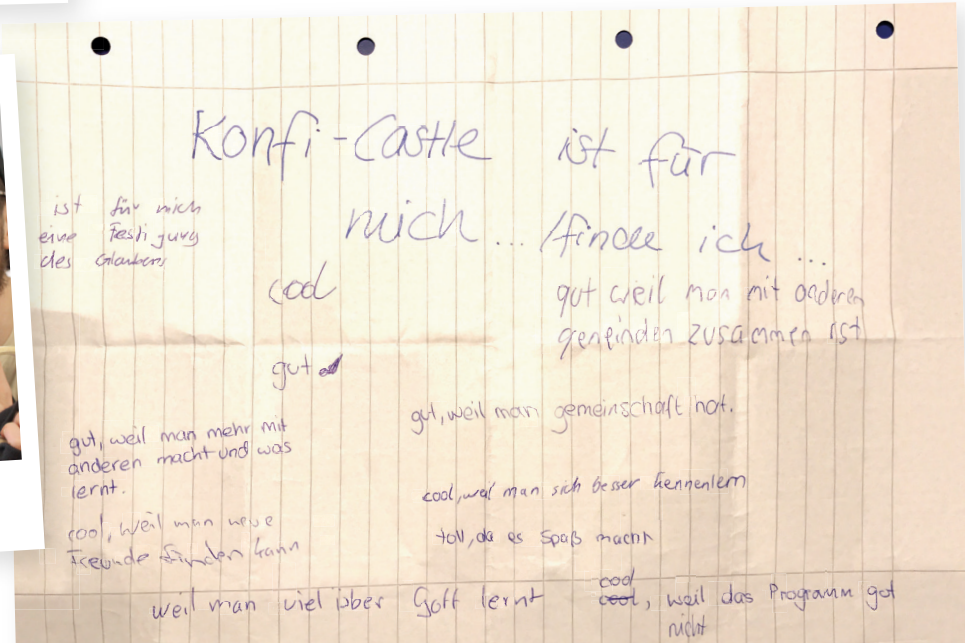 Konfi-Castle ist für
mich... /finde ich...
ist für mich
eine Festigung
des Glaubens
cool
gut weil man mit anderen
gemeinden zusammen ist
gut
gut, weil man gemeinschaft hat.
gut, weil man mehr mit
anderen macht und was
lernt.
cool, weil man sich besser kennenlern
cool, weil man neue
Freunde finden kann
toll, da es Spaß macht
weil man viel über Gott lernt
cool
cool, weil das Programm gut
nicht